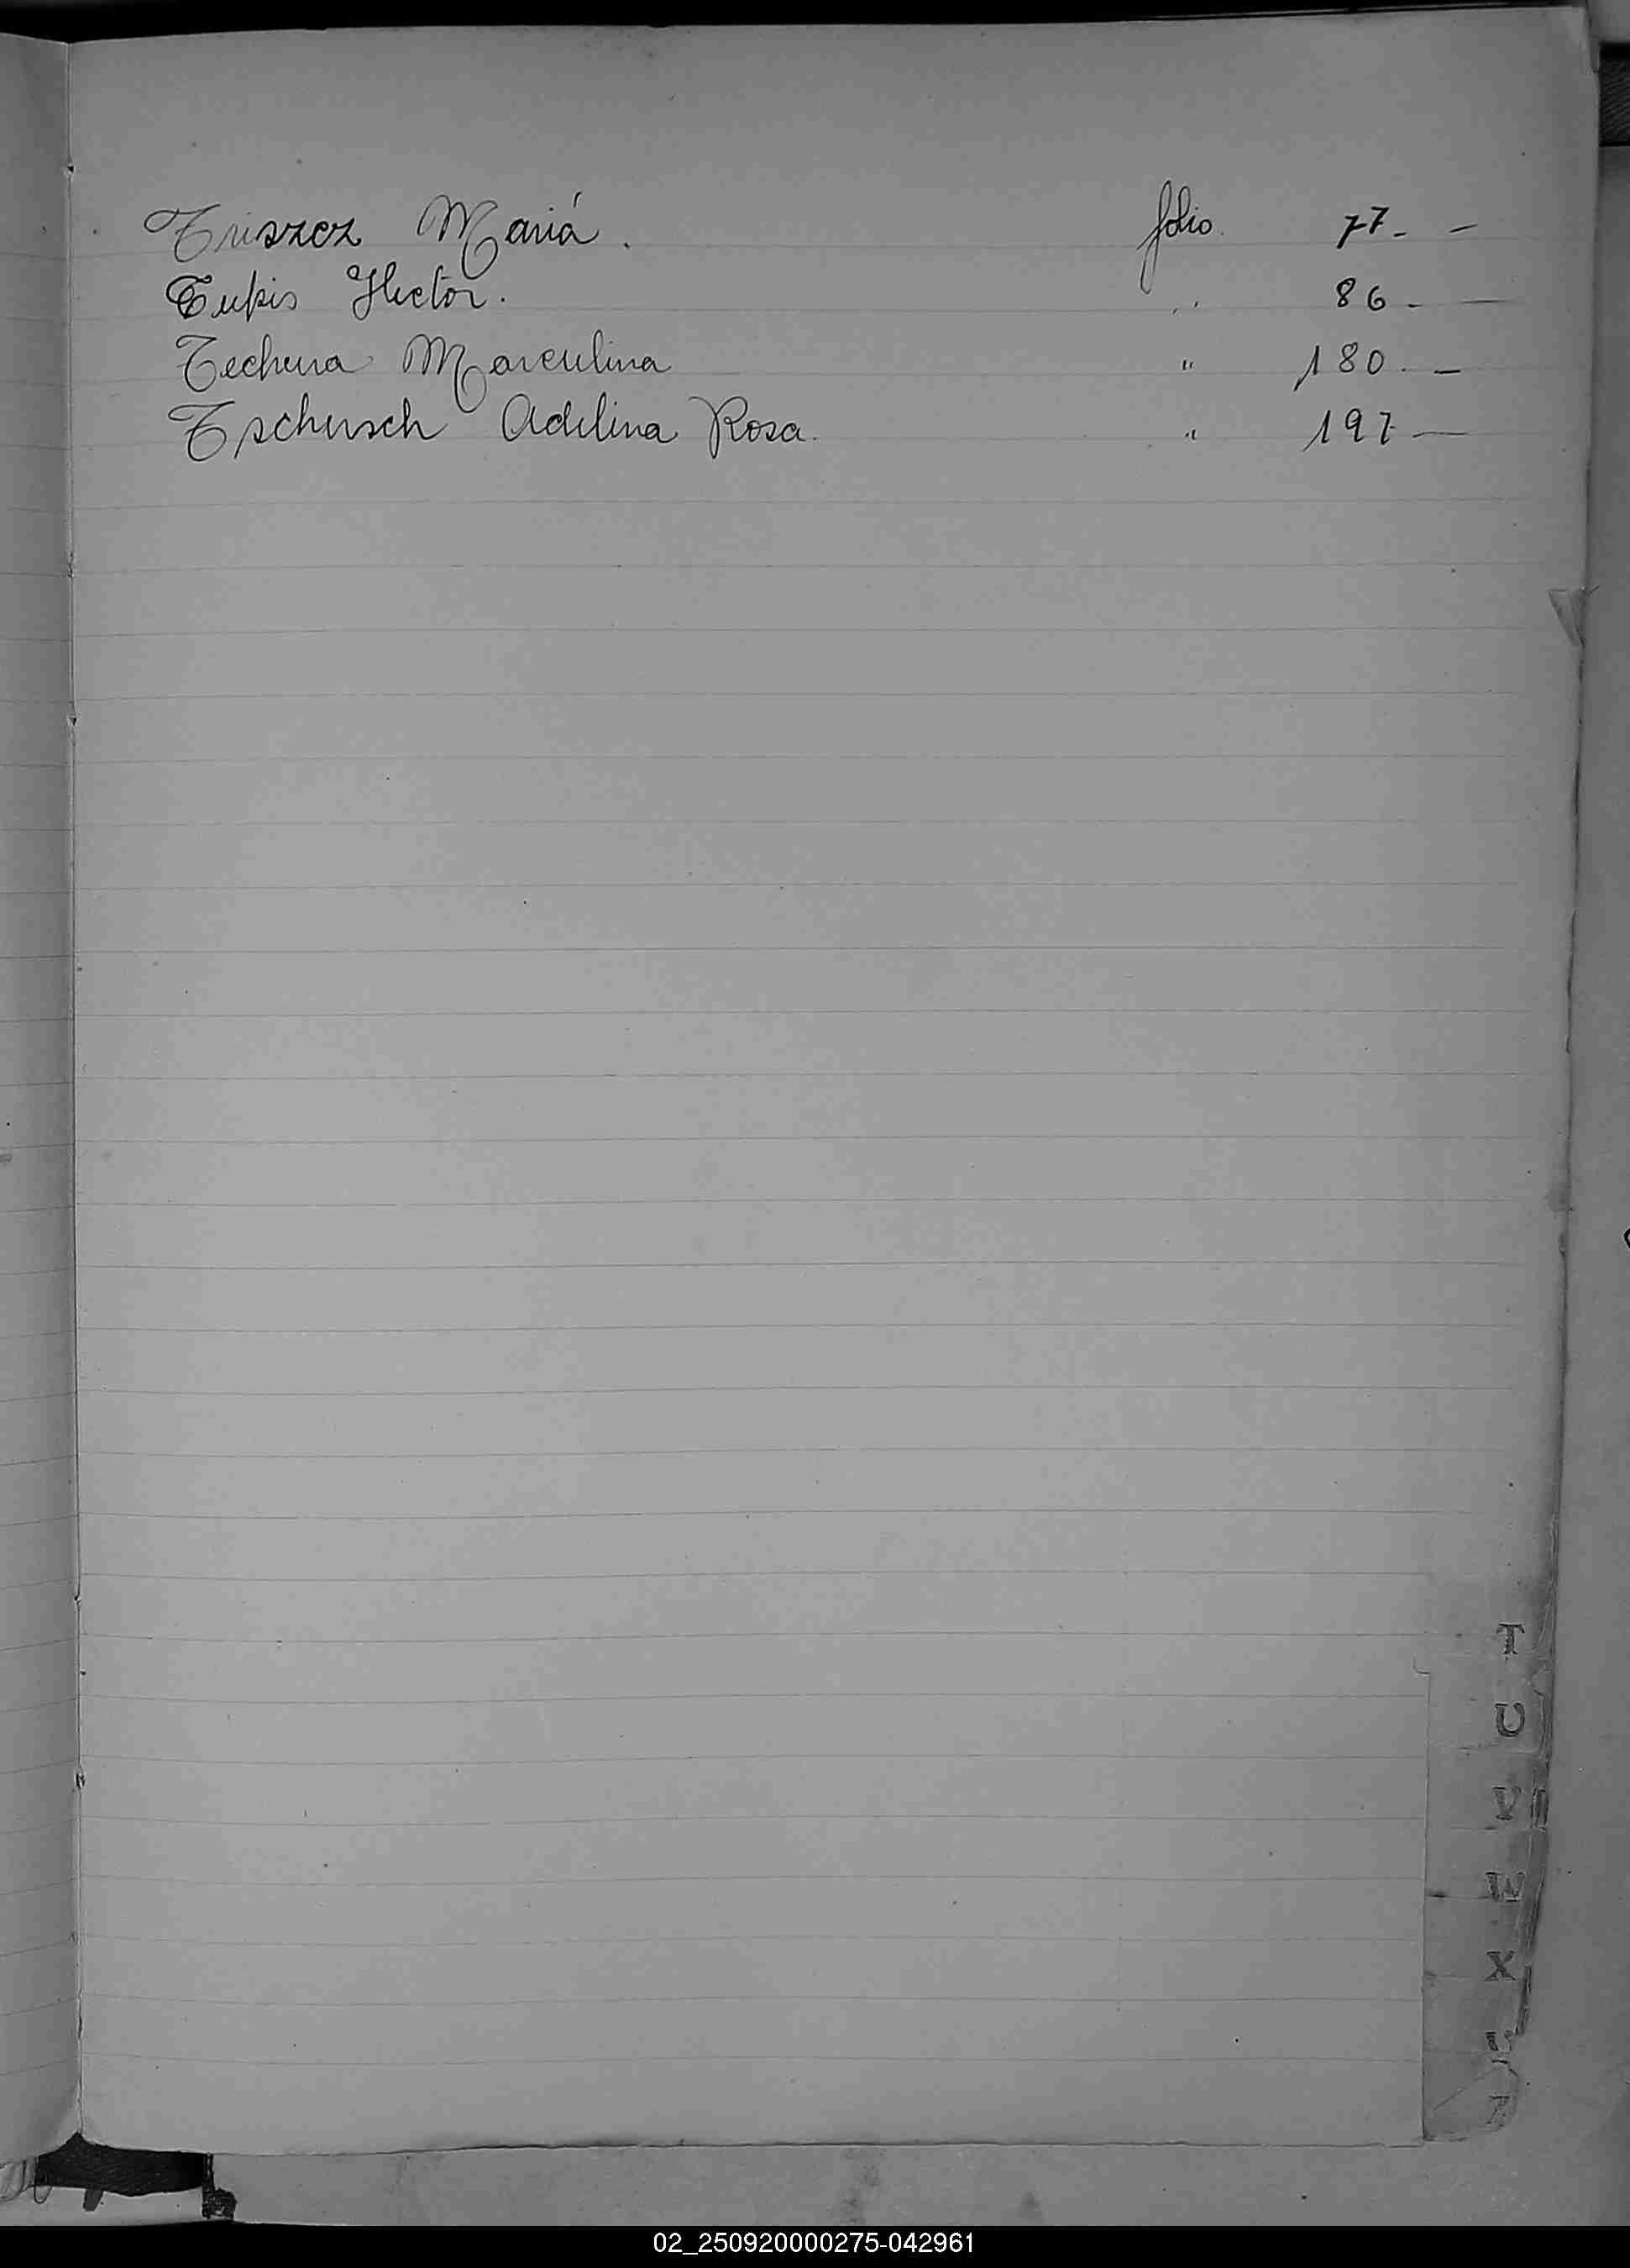 Triszcz Mariá. folio. 77. -
Tupis Hector. " 86. -
Techera Marculina " 180. -
Tschersch Adelina Rosa. " 197 -
T
U
V
W
X
Z
02_250920000275-042961